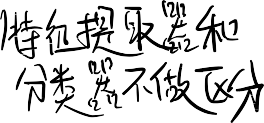 特征提取器和
分类器不做区分